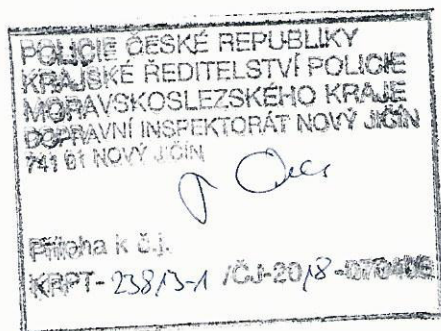 POLICIE ČESKÉ REPUBLIKY
KRAJSKÉ ŘEDITELSTVÍ POLICIE
MORAVSKOSLEZSKÉHO KRAJE
DOPRAVNÍ INSPEKTORÁT NOVÝ JIČÍN
741 01 NOVÝ JIČÍN
Příloha k č.j.
KRPT-23813-1 /ČJ-2018-070406